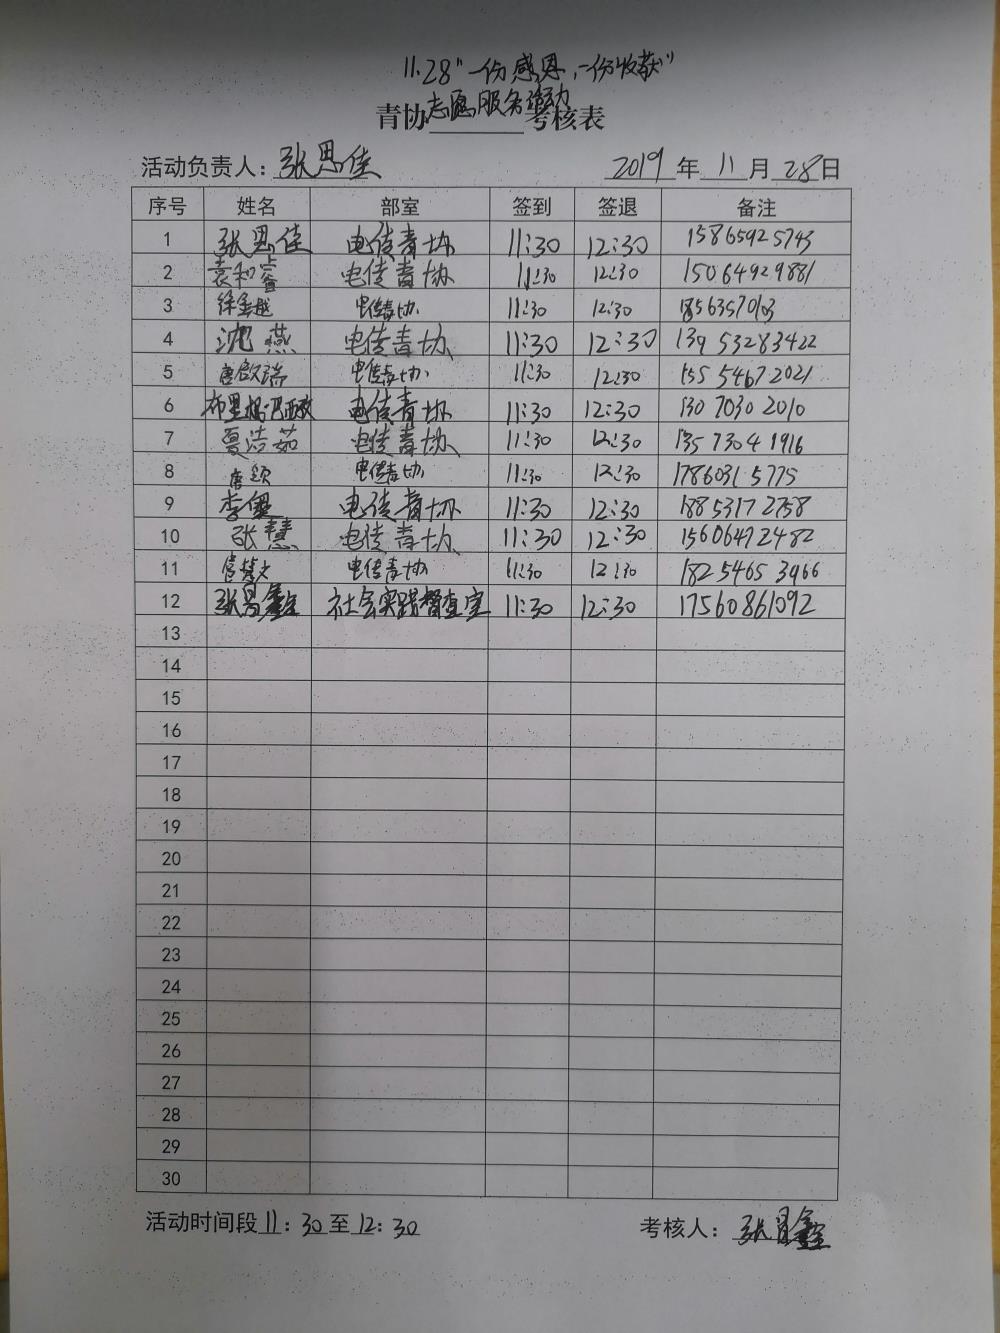 11.28"一份感恩,一份收获"
青协志愿服务活动考核表
活动负责人:张思佳 2019年11月28日
序号 姓名 部室 签到 签退 备注
1 张思佳 电信青协 11:30 12:30 15865925743
2 电信青协 11:30 12:30 15064929881
3 徐金越 电信青协 11:30 12:30
4 沈燕 电信青协 11:30 12:30 139 53283422
5 唐启瑞 电信青协 11:30 12:30 155 5467 2021
6 电信青协 11:30 12:30 130 7030 2010
7 夏洁茹 电信青协 11:30 12:30 135 7304 1916
8 唐颖 电信青协 11:30 12:30 1786031 5775
9 李健 电信青协 11:30 12:30 188 5317 2758
10 张慧 电信青协 11:30 12:30 15606472482
11 电信青协 11:30 12:30 182 5465 3966
12 张昌鑫 社会实践督查室 11:30 12:30 17560861092
13
14
15
16
17
18
19
20
21
22
23
24
25
26
27
28
29
30
活动时间段11:30至12:30 考核人:张昌鑫